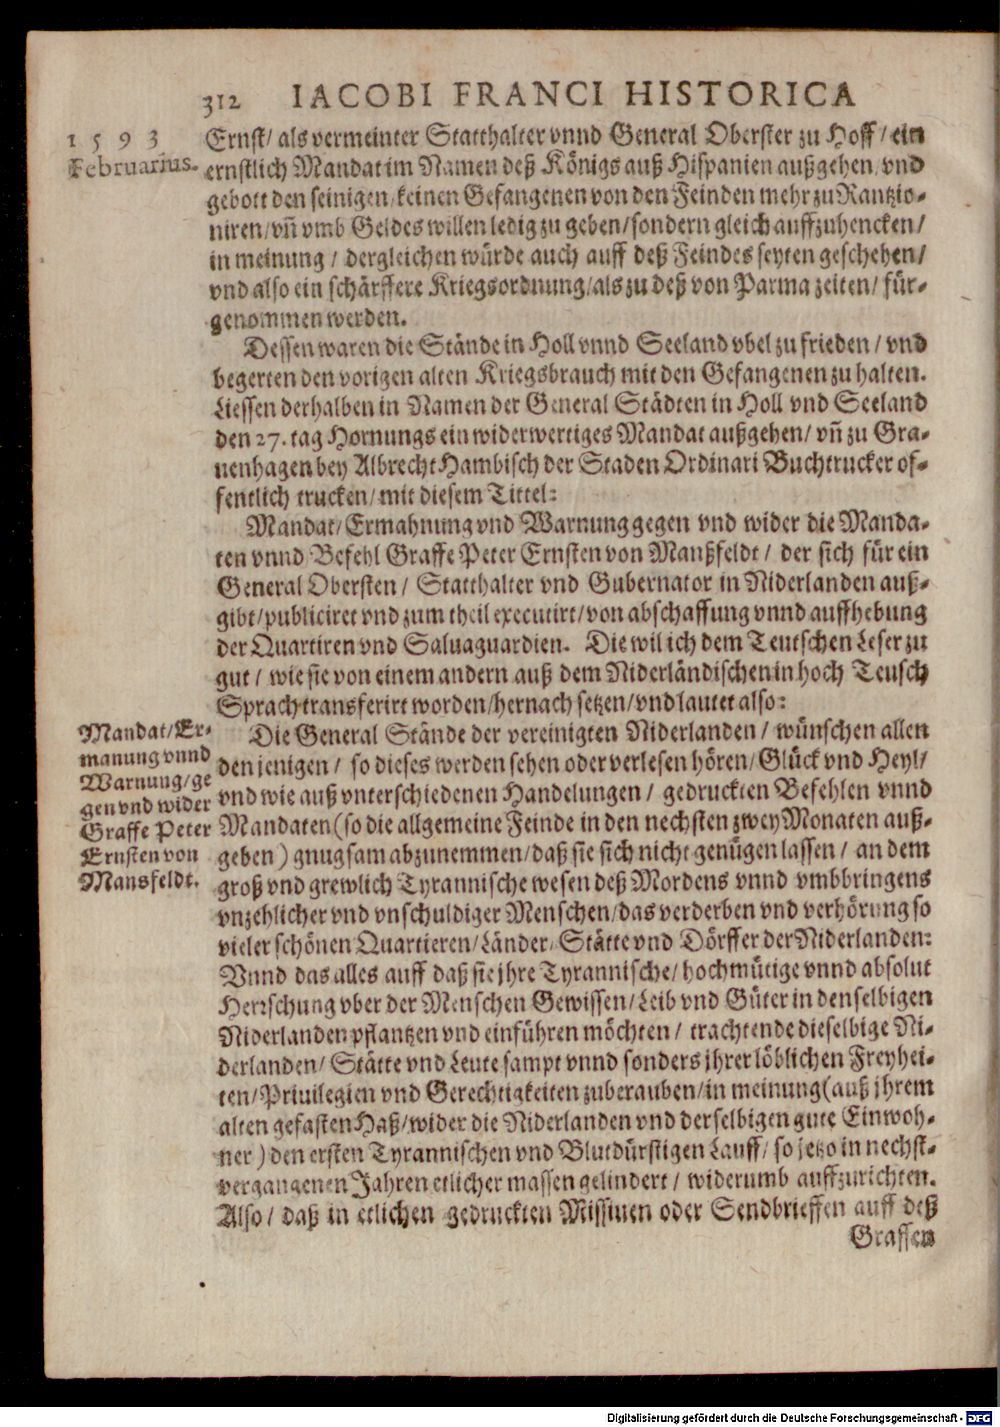 312 IACOBI FRANCI HISTORICA
1 5 9 3
Februarius.
Ernst/ als vermeinter Statthalter vnnd General Oberster zu Hoff / ein
ernstlich Mandat im Namen deß Königs auß Hispanien außgehen/ vnd
gebott den seinigen/ keinen Gefangenen von den Feinden mehr zu Rantzio-
niren/ vñ vmb Geldes willen ledig zu geben/ sondern gleich auffzuhencken/
in meinung / dergleichen würde auch auff deß Feindes seyten geschehen/
vnd also ein schärffere Kriegsordnung/ als zu deß von Parma zeiten/ für-
genommen werden.
Dessen waren die Stände in Holl vnnd Seeland vbel zu frieden / vnd
begerten den vorigen alten Kriegsbrauch mit den Gefangenen zu halten.
Liessen derhalben in Namen der General Städten in Holl vnd Seeland
den 27. tag Hornungs ein widerwertiges Mandat außgehen/ vñ zu Gra-
uenhagen bey Albrecht Hambisch der Staden Ordinari Buchtrucker of-
fentlich trucken/ mit diesem Tittel:
Mandat/ Ermahnung vnd Warnung gegen vnd wider die Manda-
ten vnnd Befehl Graffe Peter Ernsten von Manßfeldt / der sich für ein
General Obersten / Statthalter vnd Gubernator in Niderlanden auß-
gibt/ publiciret vnd zum theil executirt/ von abschaffung vnnd auffhebung
der Quartiren vnd Saluaguardien. Die wil ich dem Teutschen Leser zu
gut / wie sie von einem andern auß dem Niderländischen in hoch Teusch
Sprach transferirt worden/ hernach setzen/ vnd lautet also:
Mandat/ Er-
manung vnnd
Warnung/ ge
gen vnd wider
Graffe Peter
Ernsten von
Mansfeldt.
Die General Stände der vereinigten Niderlanden / wünschen allen
den jenigen / so dieses werden sehen oder verlesen hören/ Glück vnd Heyl/
vnd wie auß vnterschiedenen Handelungen / gedruckten Befehlen vnnd
Mandaten (so die allgemeine Feinde in den nechsten zwey Monaten auß-
geben ) gnugsam abzunemmen/ daß sie sich nicht genügen lassen / an dem
groß vnd grewlich Tyrannische wesen deß Mordens vnnd vmbbringens
vnzehlicher vnd vnschuldiger Menschen/ das verderben vnd verhörung so
vieler schönen Quartieren/ Länder/ Stätte vnd Dörffer der Niderlanden:
Vnnd das alles auff daß sie jhre Tyrannische/ hochmütige vnnd absolut
Herrschung vber der Menschen Gewissen/ Leib vnd Güter in denselbigen
Niderlanden pflantzen vnd einführen möchten / trachtende dieselbige Ni-
derlanden/ Stätte vnd Leute sampt vnnd sonders jhrer löblichen Freyhei-
ten/ Priuilegien vnd Gerechtigkeiten zuberauben/ in meinung (auß jhrem
alten gefasten Haß/ wider die Niderlanden vnd derselbigen gute Einwoh-
ner ) den ersten Tyrannischen vnd Blutdürstigen Lauff/ so jetzo in nechst-
vergangenen Jahren etlicher massen gelindert / widerumb auffzurichten.
Also / daß in etlichen gedruckten Missiuen oder Sendbrieffen auff deß
Graffen
Digitalisierung gefördert durch die Deutsche Forschungsgemeinschaft - DFG